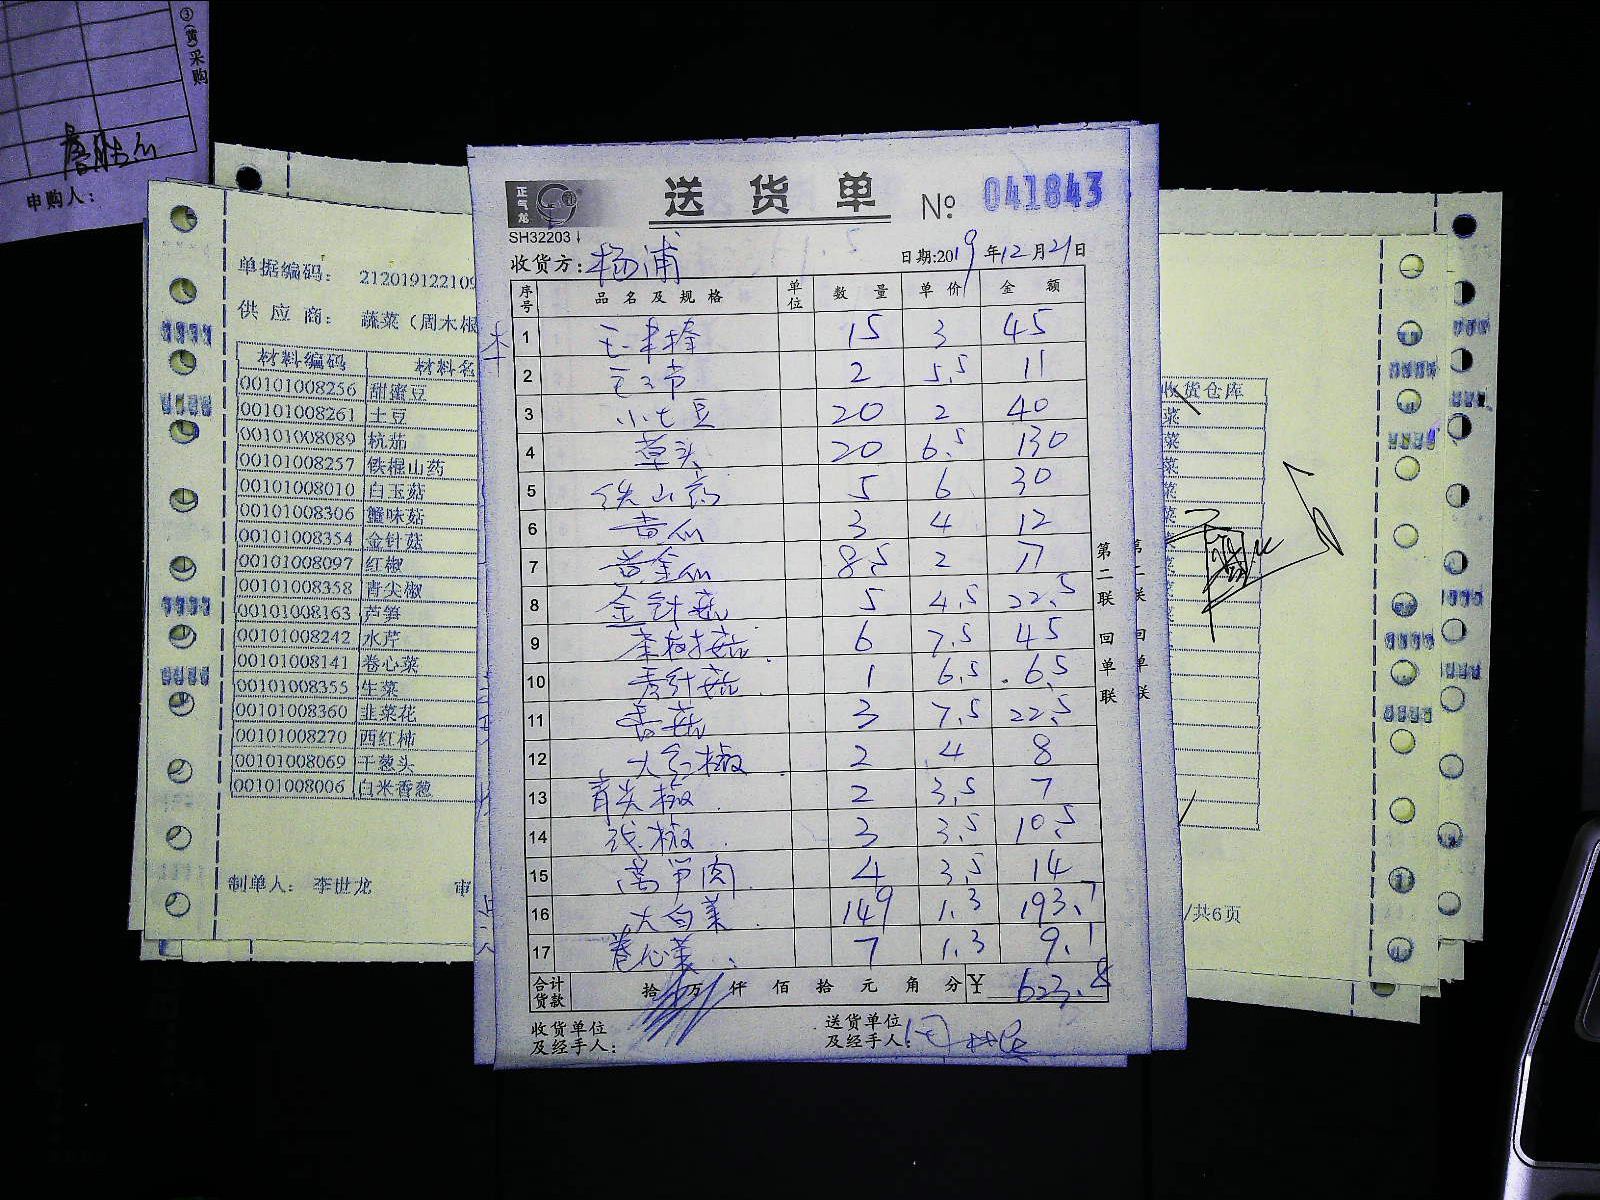 ③(黄)采购
申购人：
单据编码： 212019122109
供 应 商： 蔬菜（周木根
材料编码 材料名
00101008256 甜蜜豆
00101008261 土豆
00101008089 杭茄
00101008257 铁棍山药
00101008010 白玉菇
00101008306 蟹味菇
00101008354 金针菇
00101008097 红椒
00101008358 青尖椒
00101008163 芦笋
00101008242 水芹
00101008141 卷心菜
00101008355 生菜
00101008360 韭菜花
00101008270 西红柿
00101008069 干葱头
00101008006 白米香葱
制单人： 李世龙 审
正气龙
SH32203
送货单 № 041843
收货方：杨浦 日期:2019年12月21日
序号 品名及规格 单位 数量 单价 金额
1 15 3 45
2 2 5.5 11
3 小土豆 20 2 40
4 草头 20 6.5 130
5 铁山药 5 6 30
6 黄瓜 3 4 12
7 黄金瓜 8.5 2 17
8 金针菇 5 4.5 22.5
9 茶树菇 6 7.5 45
10 秀针菇 1 6.5 6.5
11 香菇 3 7.5 22.5
12 大红椒 2 4 8
13 青尖椒 2 3.5 7
14 线椒 3 3.5 10.5
15 莴笋肉 4 3.5 14
16 大白菜 149 1.3 193.7
17 卷心菜 7 1.3 9.1
合计货款 拾 万 仟 佰 拾 元 角 分 ¥ 623.8
收货单位及经手人：
送货单位及经手人：周木根
第二联 回单联
第二联 回单联
收货仓库
菜
菜
菜
菜
菜
/共6页